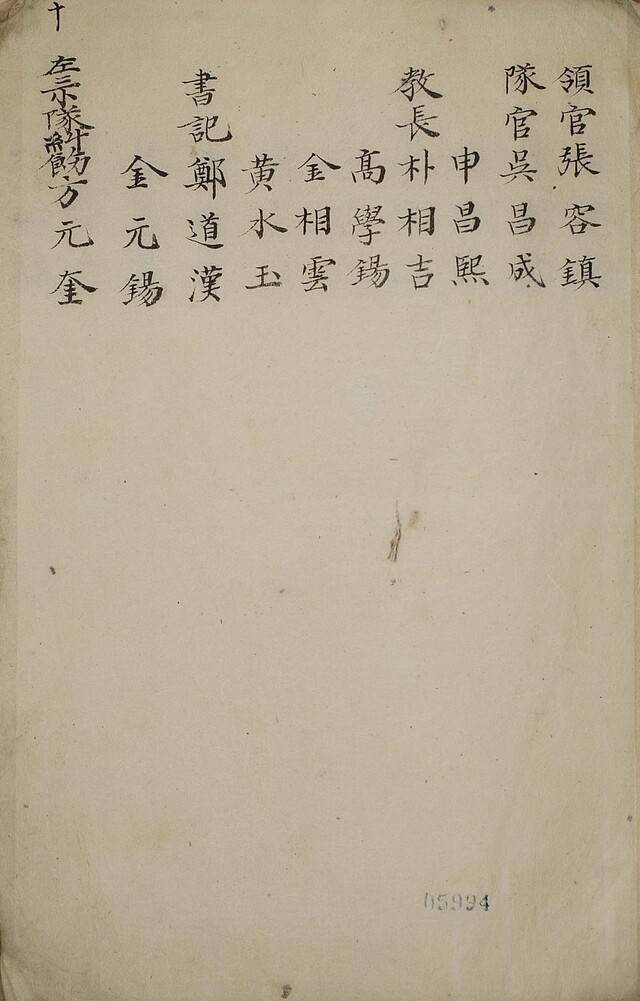 領官張容鎮
隊官吳昌成
申昌熙
教長朴相吉
高學錫
金相雲
黃水玉
書記鄭道漢
金元錫
左三小隊 方元奎
十
05994